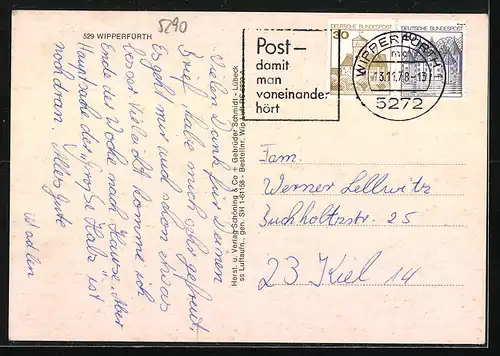 5290
529 WIPPERFÜRTH
Vielen Dank für Deinen
Brief, habe mich sehr gefreut.
Es geht mir auch schon etwas
besser. Vielleicht komme ich
Ende der Woche nach Hause. Aber
Hauptsache der "große Hals" ist
wohl dran. Alles gute
Herst. u. Verlag Schöning & Co + Gebrüder Schmidt - Lübeck
ss Luftaufn., gen. SH 1-6158 - Bestellnr. Wip
Post –
damit
man
voneinander
hört
30
DEUTSCHE BUNDESPOST
DEUTSCHE BUNDESPOST
WIPPERFÜRTH 1
13.11.78-13
5272
Fam.
Werner Lellwitz
Buchholtzstr. 25
23 Kiel 14